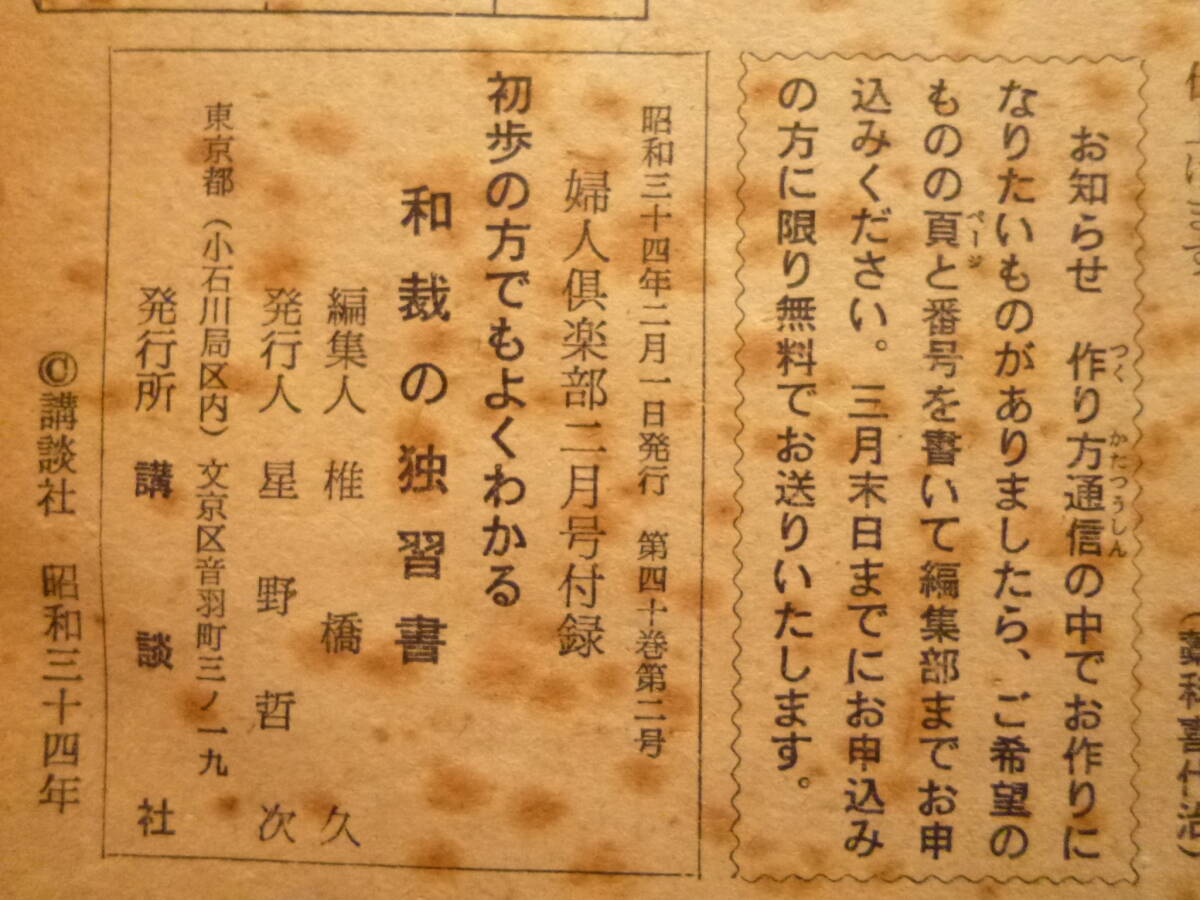 お知らせ 作り方通信の中でお作りに
なりたいものがありましたら、ご希望の
ものの頁と番号を書いて編集部までお申
込みください。三月末日までにお申込み
の方に限り無料でお送りいたします。
昭和三十四年二月一日発行 第四十巻第二号
婦人倶楽部二月号付録
初歩の方でもよくわかる
和裁の独習書
編集人 椎橋久
発行人 星野哲次
東京都(小石川局区内)文京区音羽町三ノ一九
発行所 講談社
©講談社 昭和三十四年